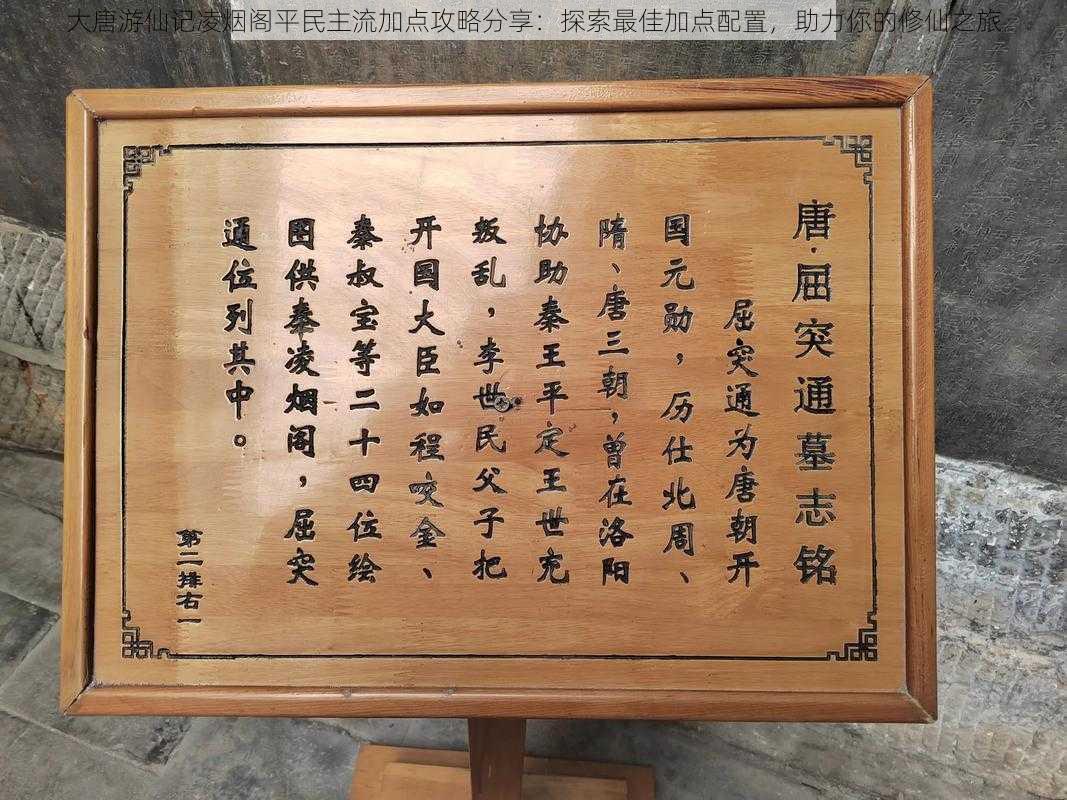 大唐游仙记凌烟阁平民主流加点攻略分享：探索最佳加点配置，助力你的修仙之旅
唐·屈突通墓志铭
屈突通为唐朝开
国元勋，历仕北周、
隋、唐三朝，曾在洛阳
协助秦王平定王世充
叛乱，李世民父子把
开国大臣如程咬金、
秦叔宝等二十四位绘
图供奉凌烟阁，屈突
通位列其中。
第二排右一